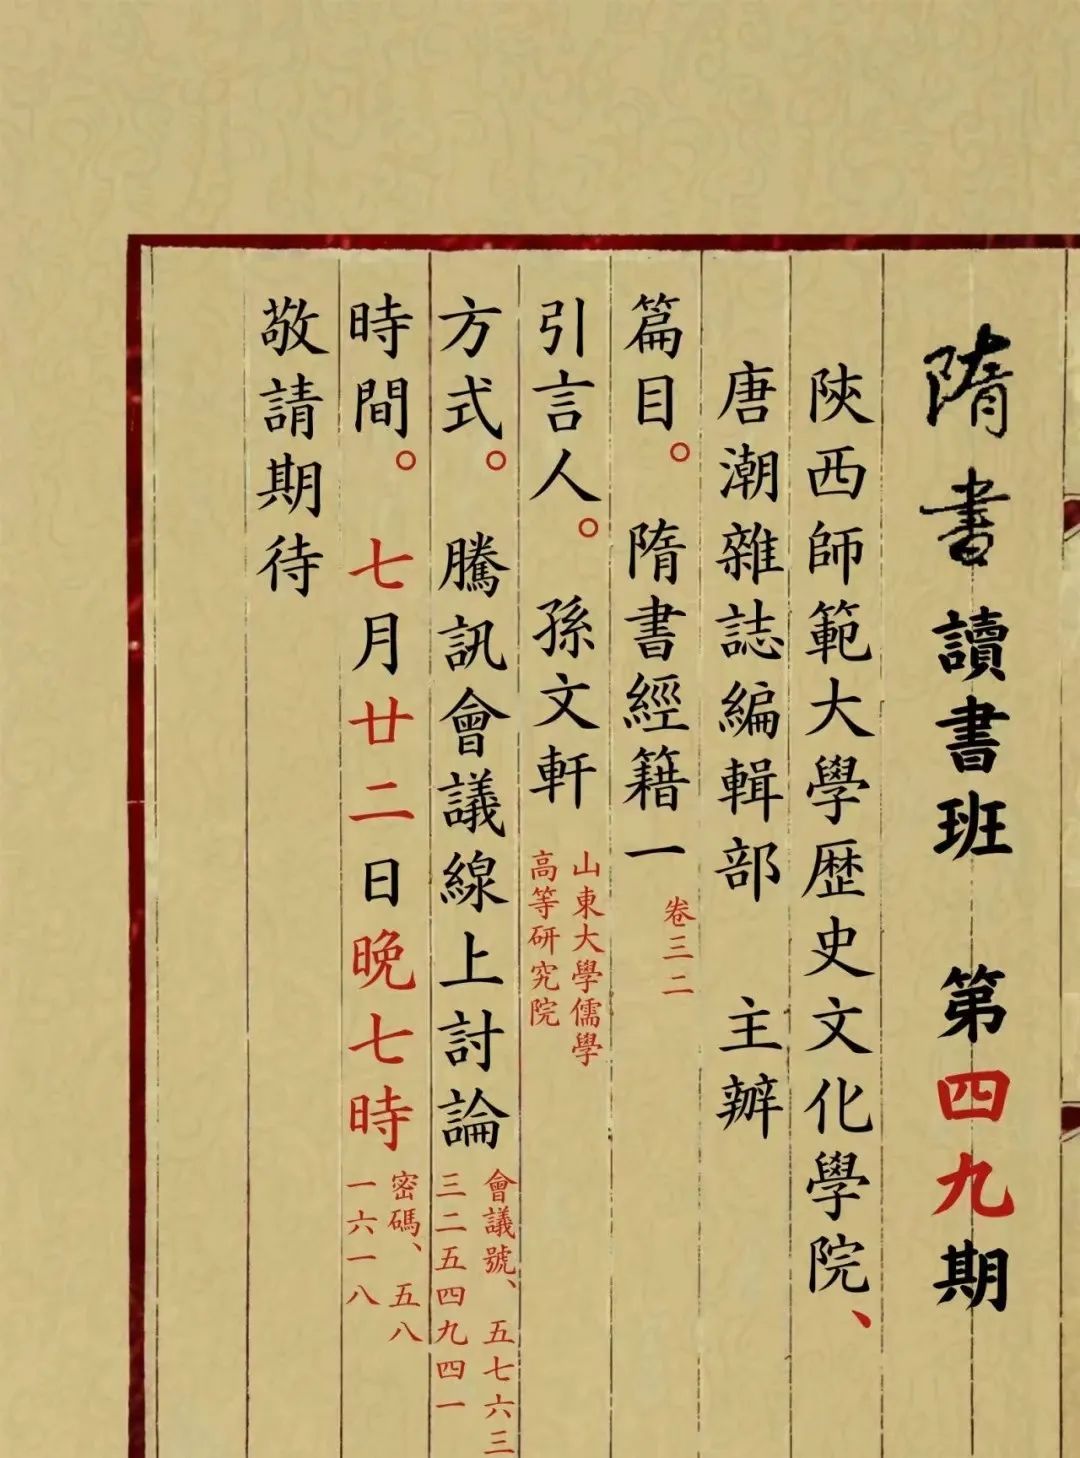 隋書讀書班 第四九期
陝西師範大學歷史文化學院、
唐潮雜誌編輯部 主辦
篇目。 隋書經籍一 卷三二
引言人。 孫文軒 山東大學儒學
高等研究院
方式。 騰訊會議線上討論 會議號、五七六三
三二五四九四一
時間。 七月廿二日晚七時 密碼、五八
一六一八
敬請期待